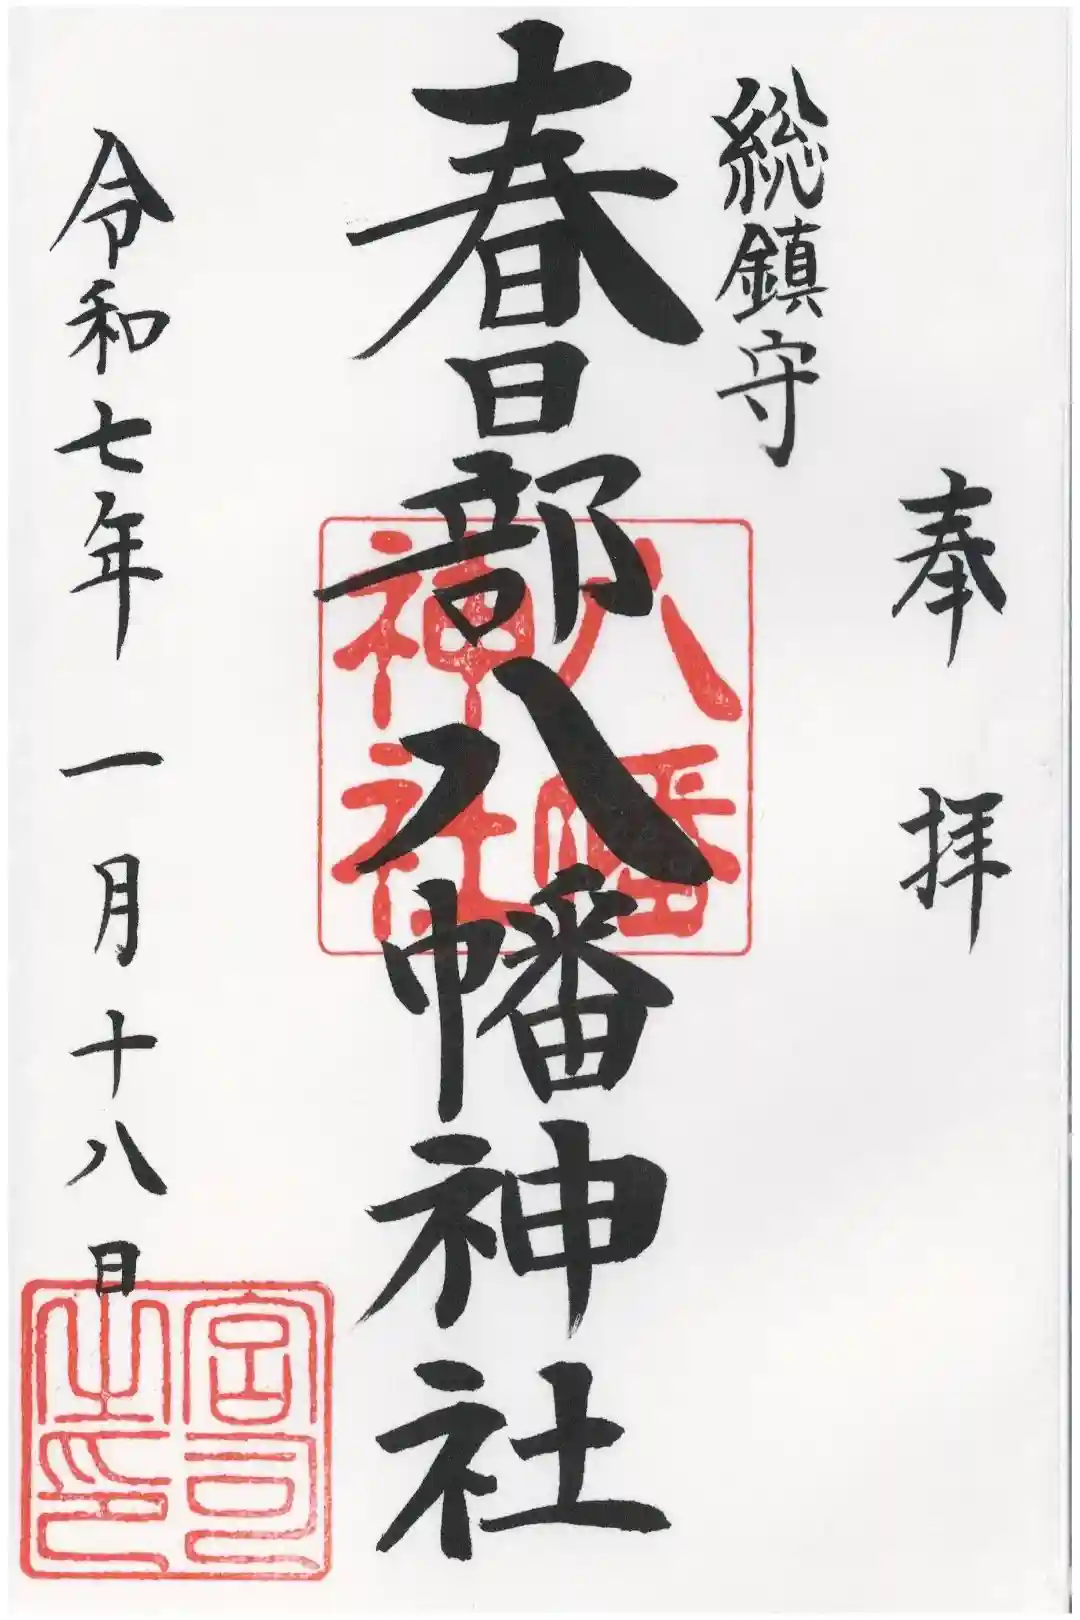 奉拝
総鎮守
春日部八幡神社
八幡
神社
令和七年一月十八日
宮司
之印